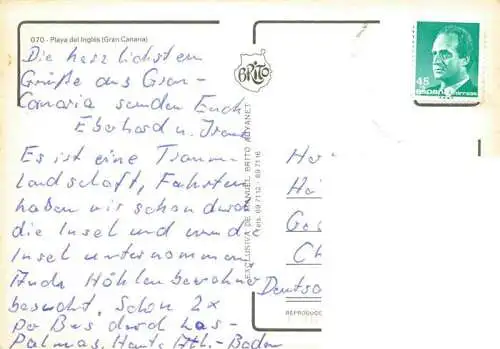 070 - Playa del Inglés (Gran Canaria)
Die herzlichsten
Grüße aus Gran-
Canaria senden Euch
Eberhard u.
Es ist eine Traum-
landschaft, Fahrten
haben wir schon durch
die Insel und um die
Insel unternommen
Auch Höhlenbewohner
besucht, Schon 2x
per Bus durch Las-
Palmas. Heute Atl.-Baden
BRITO
EXCLUSIVA DE MANUEL BRITO AUYANET
Tels. 69 71 12 - 69 71 16
45
ESPAÑA correos
He
Hä
Ge
Ch
Deutsc
REPRODUCC